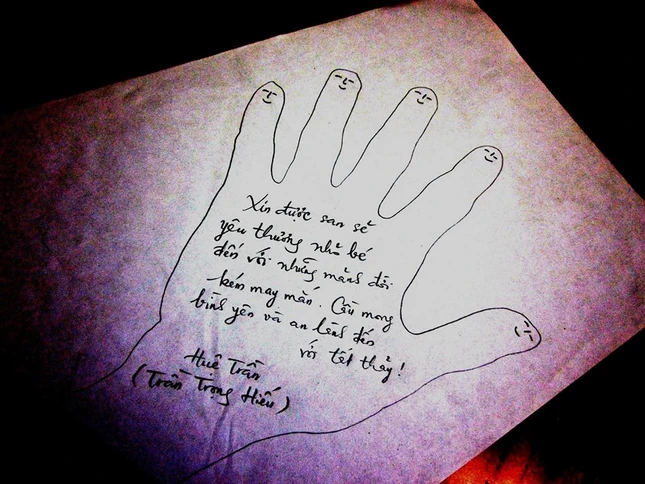 Xin được san sẻ
yêu thương nhỏ bé
đến với những mảnh đời
kém may mắn. Cầu mong
bình yên và an lành đến
với tất thảy!
Huệ Trần
(Trần Trọng Hiếu)